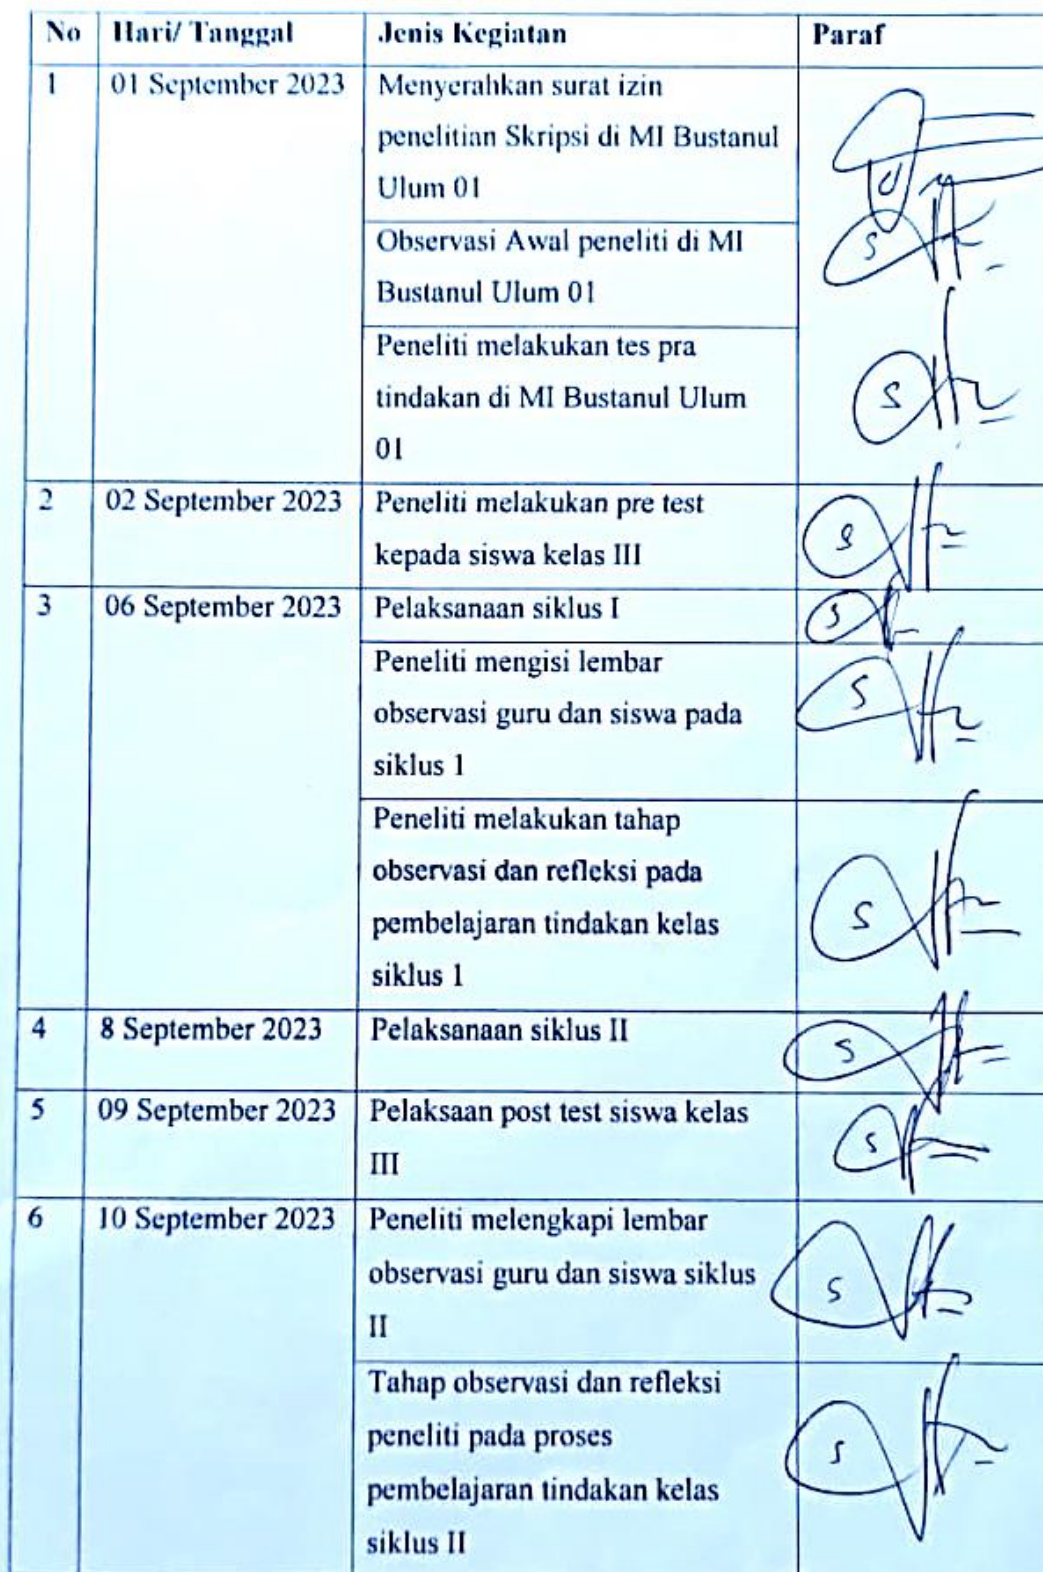 No Hari/ Tanggal Jenis Kegiatan Paraf
1 01 September 2023 Menyerahkan surat izin
penelitian Skripsi di MI Bustanul
Ulum 01
Observasi Awal peneliti di MI
Bustanul Ulum 01
Peneliti melakukan tes pra
tindakan di MI Bustanul Ulum
01
2 02 September 2023 Peneliti melakukan pre test
kepada siswa kelas III
3 06 September 2023 Pelaksanaan siklus I
Peneliti mengisi lembar
observasi guru dan siswa pada
siklus 1
Peneliti melakukan tahap
observasi dan refleksi pada
pembelajaran tindakan kelas
siklus 1
4 8 September 2023 Pelaksanaan siklus II
5 09 September 2023 Pelaksaan post test siswa kelas
III
6 10 September 2023 Peneliti melengkapi lembar
observasi guru dan siswa siklus
II
Tahap observasi dan refleksi
peneliti pada proses
pembelajaran tindakan kelas
siklus II